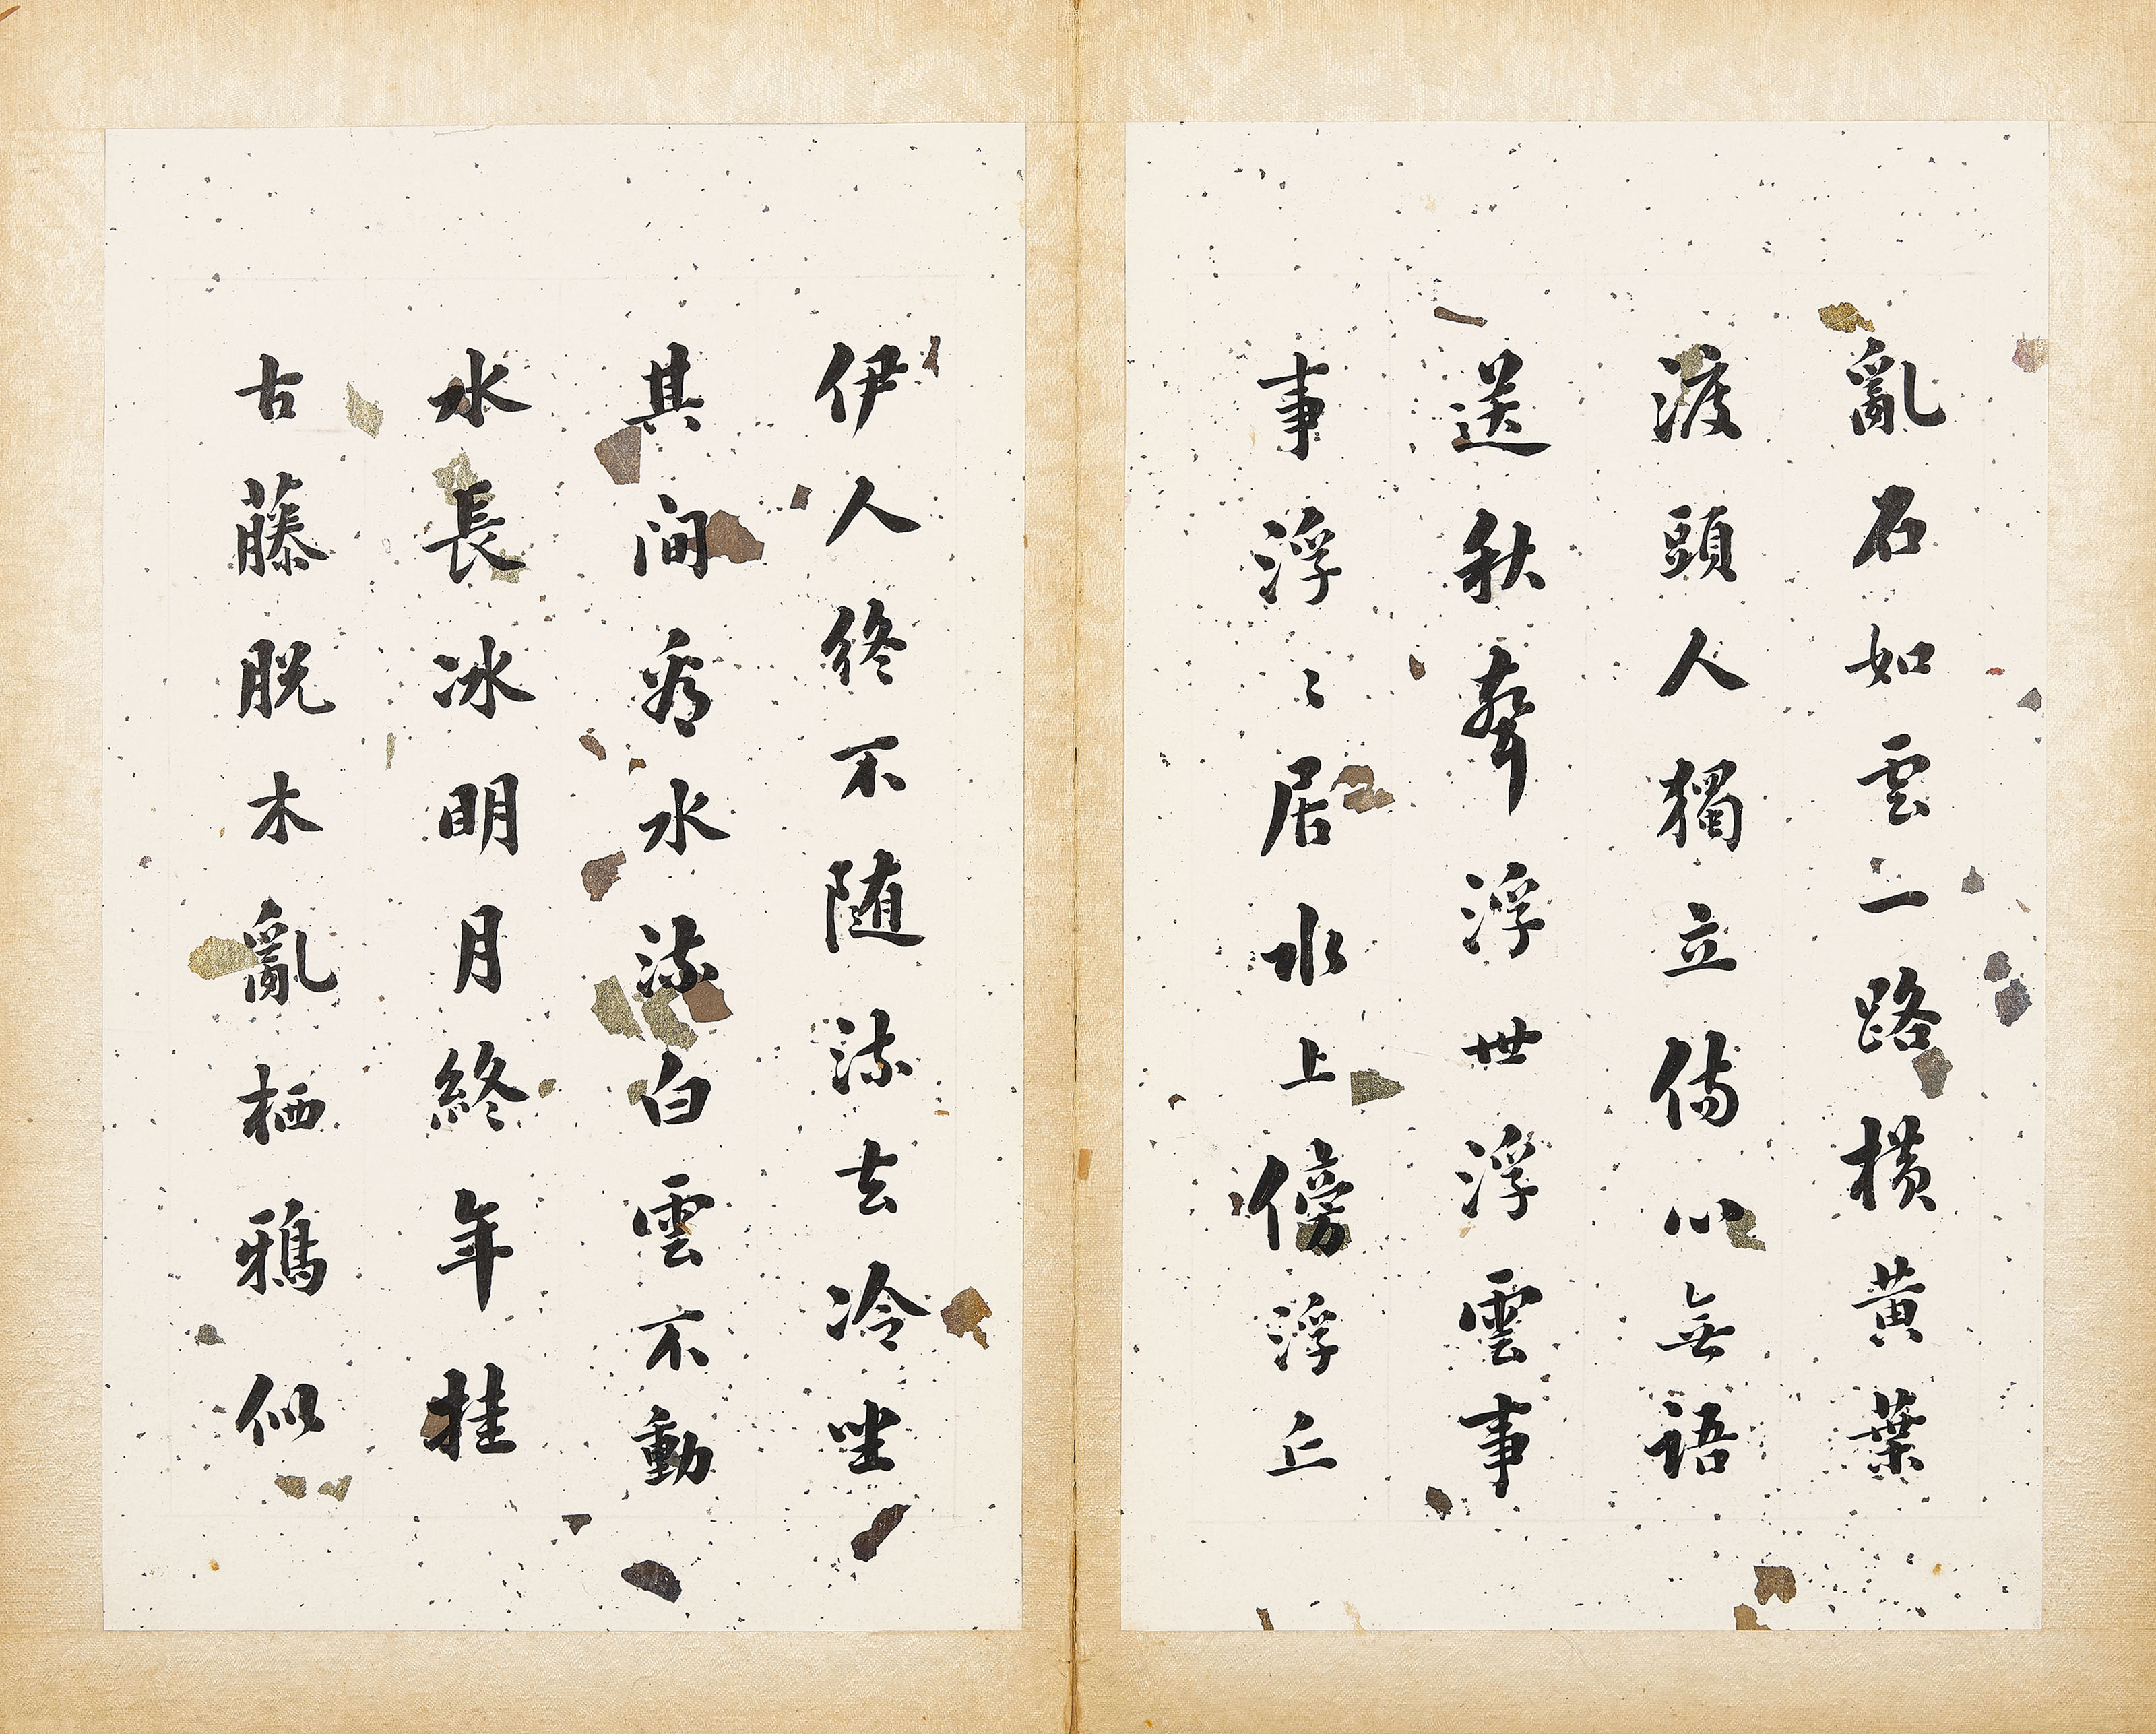 亂石如雲一路横黄葉
渡頭人獨立傷心無語
送秋聲浮世浮雲事
事浮〻居水上傍浮丘
伊人終不随流去冷坐
其間看水流白雲不動
水長冰明月終年挂
古藤脱木亂栖鴉似